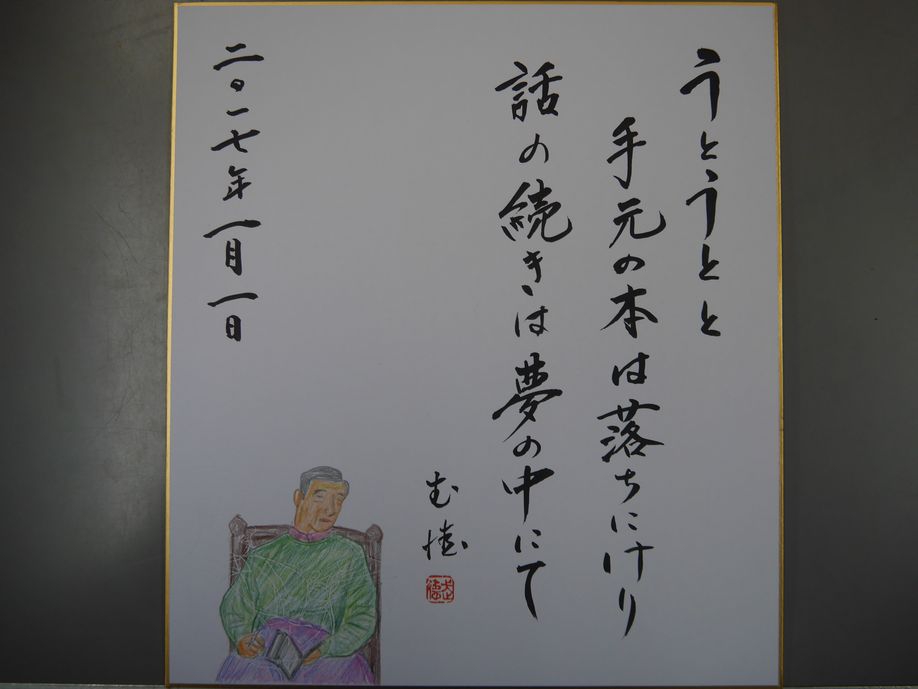 うとうとと
手元の本は落ちにけり
話の続きは夢の中にて
二〇一七年一月一日